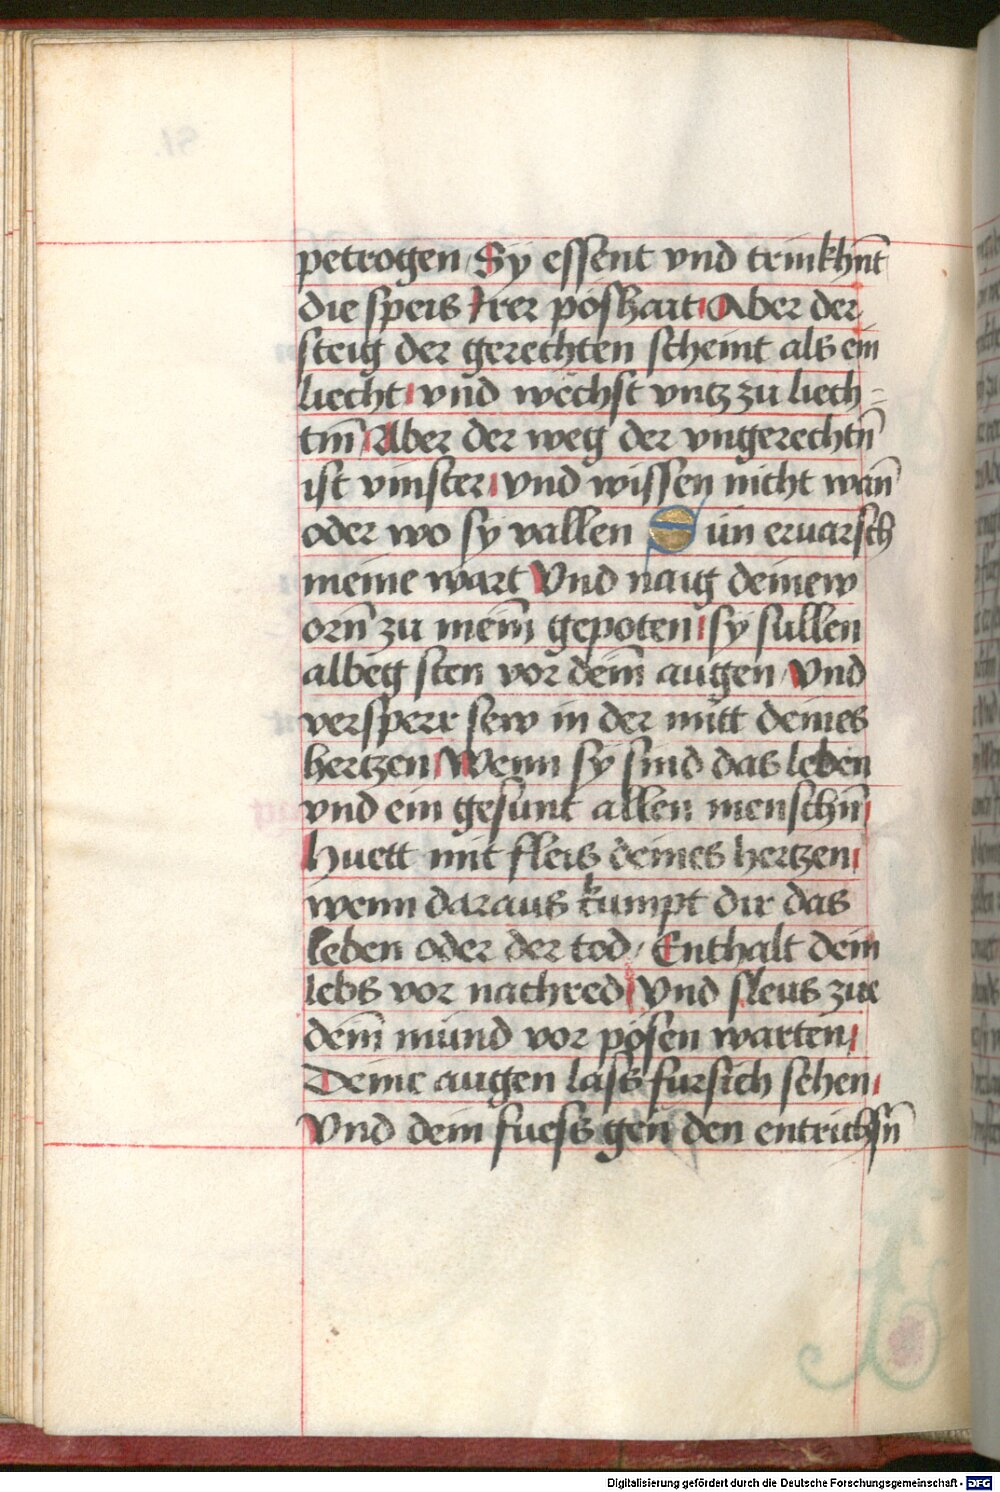 petrogen / Sÿ essent vnd trinkhn̄t
die speis Irer póshait Aber der
steig der gerechten scheint als ein
liecht vnd wéchst vntz zu liech-
tm̄ Aber der weg der vngerechtn̄
ist vinster vnd wissen nicht wan̄
oder wo sÿ vallen Sún eruarsch
meine wart Vnd naig deinew
orn̄ zu meim̄ gepoten sÿ sullen
albeg sten vor deim̄ augen / Vnd
versperr sew in der mitt deines
hertzen Wenn sÿ sind das leben
vnd ein gesunt allen menschn̄
Huett mit fleis deines hertzen
wenn daraus kumpt dir das
leben oder der tod / Enthalt dein
lebs vor nachred Vnd fleus zue
deim̄ mund vor pósen warten
Deine augen lass fursich sehen
Vnd dein fuess gen den entrichsn̄
Digitalisierung gefördert durch die Deutsche Forschungsgemeinschaft - DFG